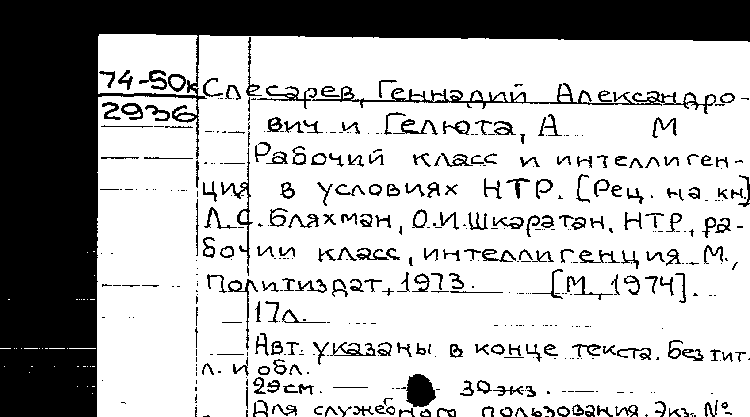 74-50к
2936
Слесарев, Геннадий Александро-
вич и Гелюта, А М
Рабочий класс и интеллиген-
ция в условиях НТР. [Рец. на кн]
Л.С. Бляхман, О.И. Шкаратан. НТР, ра-
бочии класс, интеллигенция М.,
Политиздат, 1973. [М., 1974].
17л.
Авт. указаны в конце текста. Без тит.
л. и обл.
29см. — 30экз.
Для служебного пользования. Экз. №